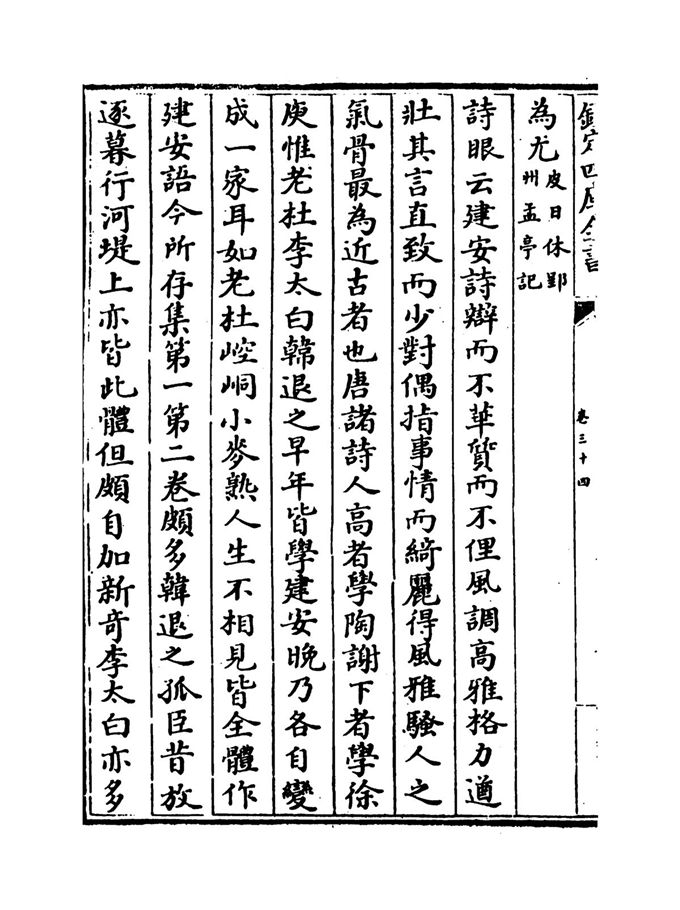 欽定四庫全書
卷三十四
為尤皮日休郢州孟亭記
詩眼云建安詩辯而不華質而不俚風調高雅格力遒
壯其言直致而少對偶指事情而綺麗得風雅騷人之
氣骨最為近古者也唐諸詩人高者學陶謝下者學徐
庾惟老杜李太白韓退之早年皆學建安晚乃各自變
成一家耳如老杜崆峒小麥熟人生不相見皆全體作
建安語今所存集第一第二卷頗多韓退之孤臣昔放
逐暮行河堤上亦皆此體但頗自加新奇李太白亦多